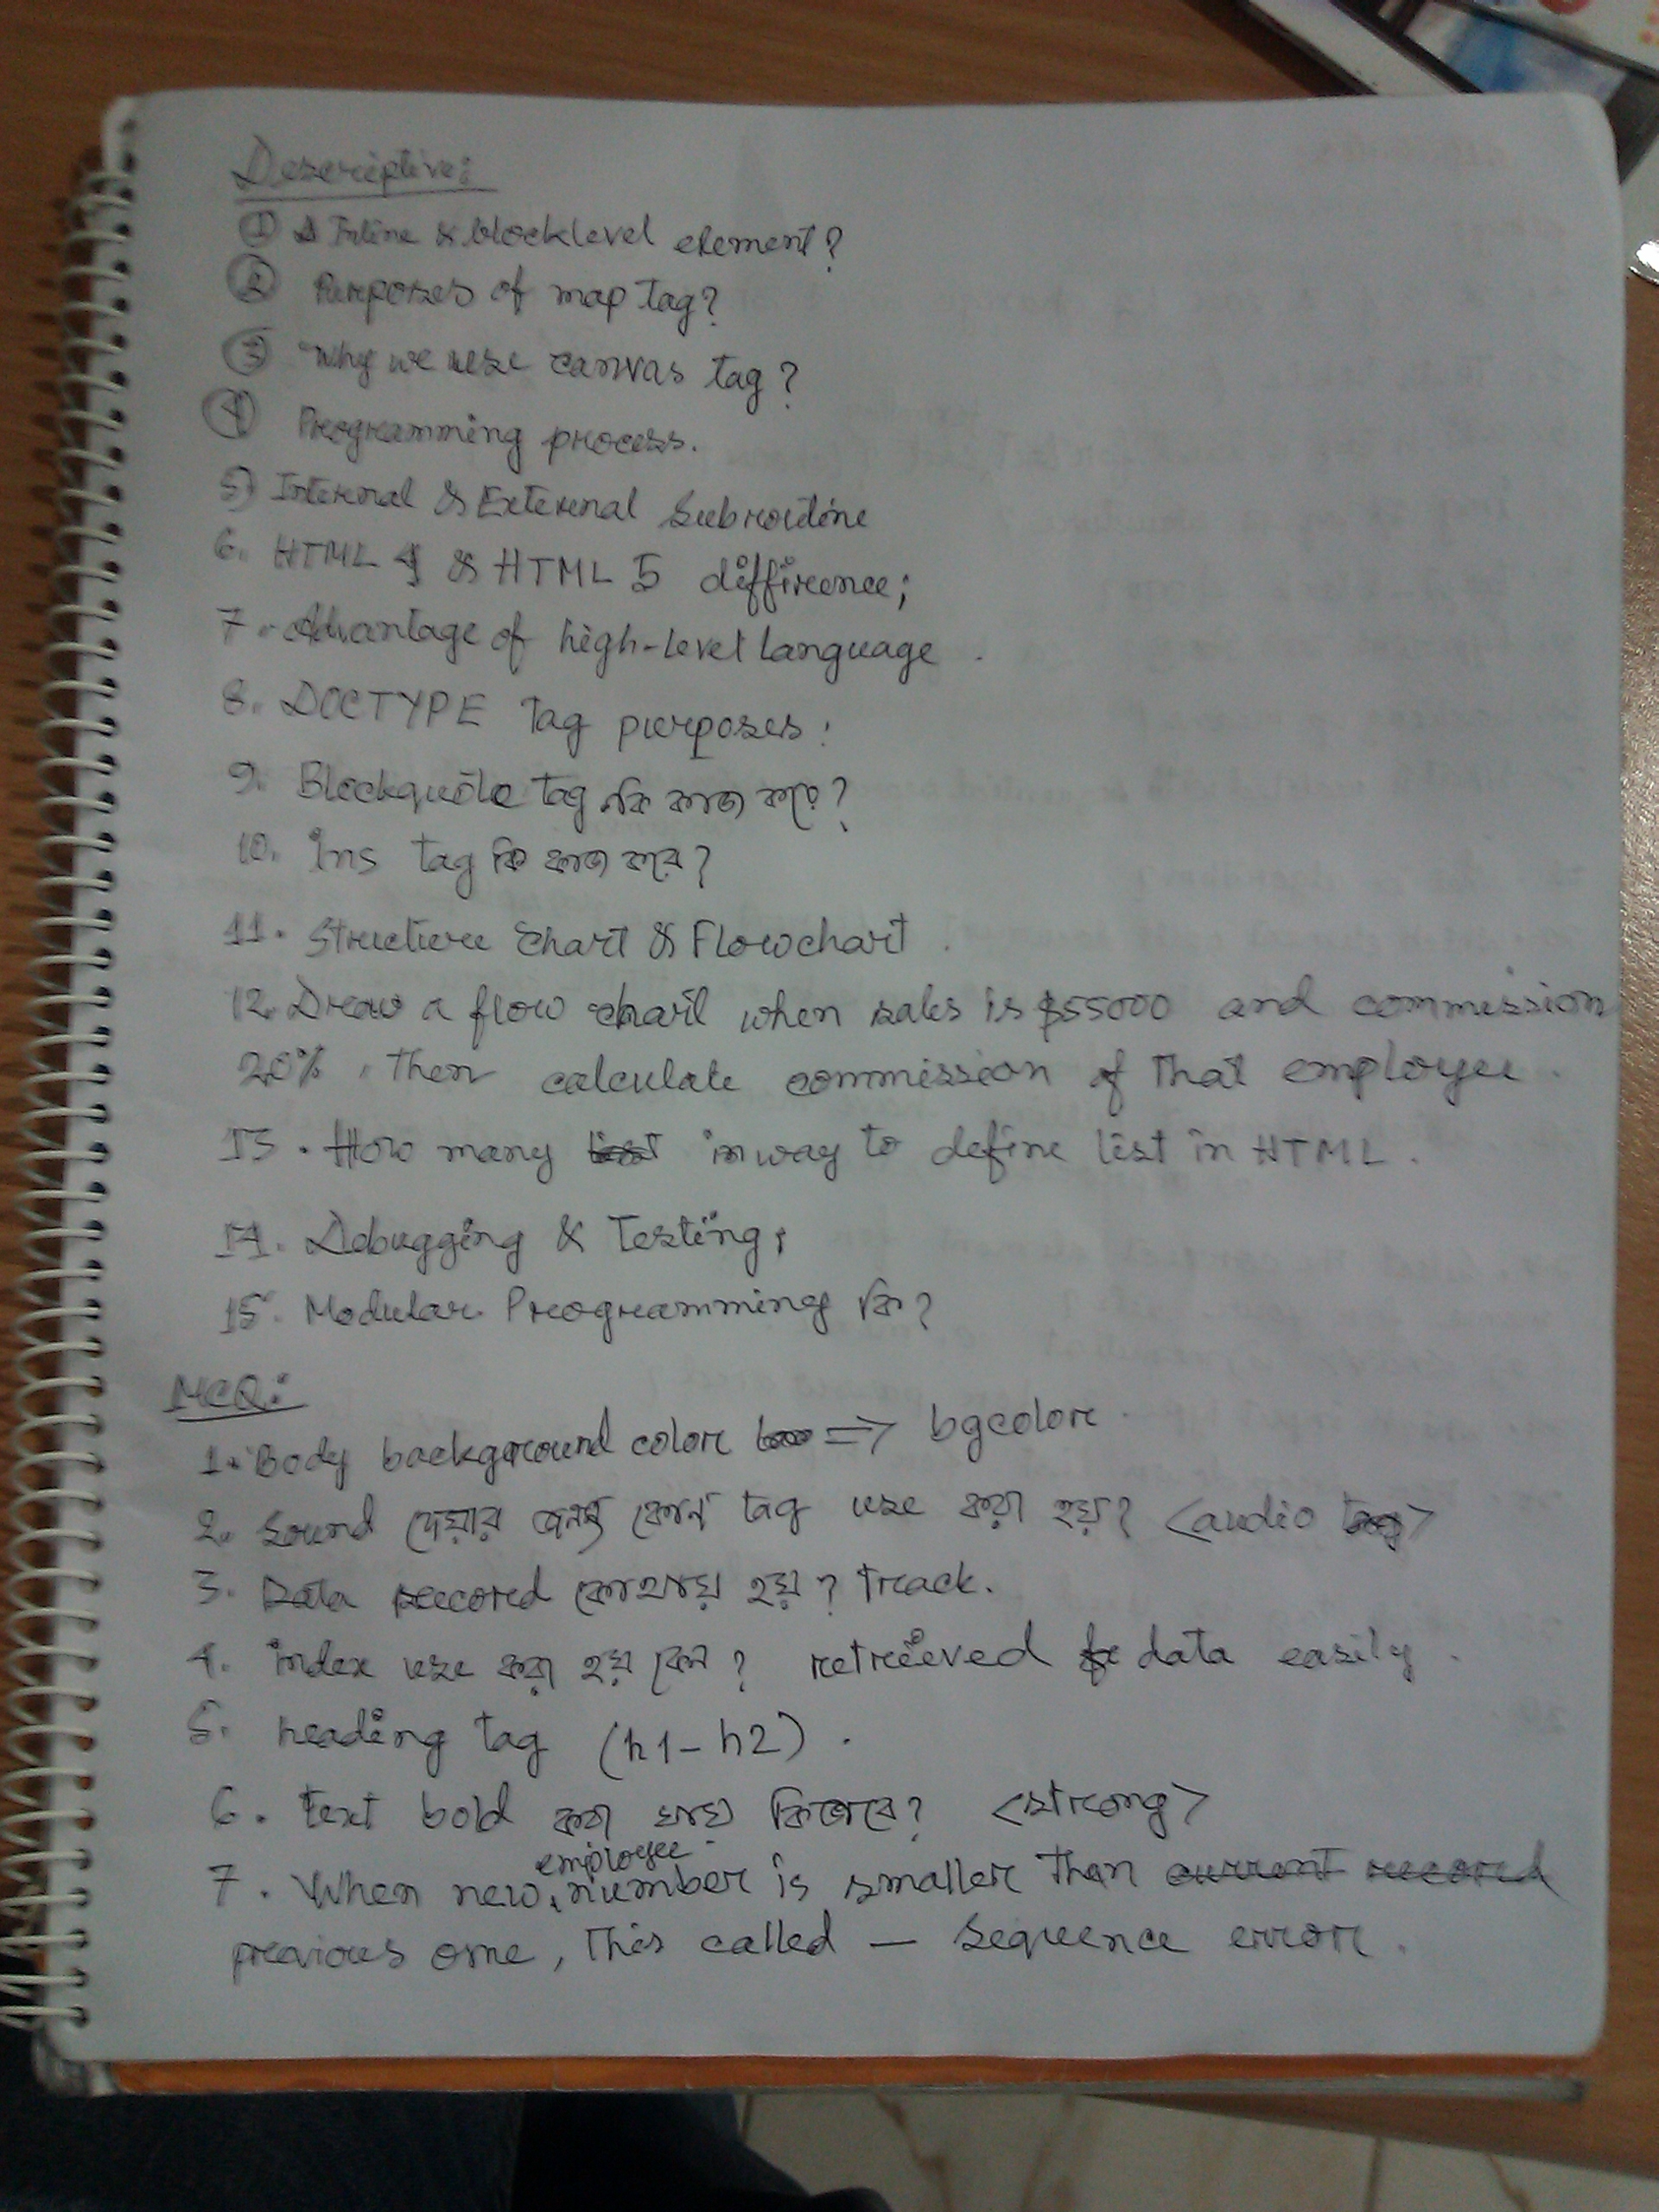 Descriptive:
① Inline & blocklevel element?
② Purposes of map tag?
③ Why we use canvas tag?
④ Programming process.
5) Internal & External Subroutine
6. HTML 4 & HTML 5 diffirence;
7. Advantage of high-level language.
8. DOCTYPE tag purposes:
9. Blockquote tag কি কাজ করে?
10. Ins tag কি কাজ করে?
11. Structure chart & Flowchart.
12. Draw a flow chart when sales is $55000 and commission
20%, then calculate commission of that employee.
13. How many in way to define list in HTML.
14. Debugging & Testing;
15. Modular Programming কি?
MCQ:
1. Body background color ⇒ bgcolor.
2. Sound দেয়ার জন্য কোন tag use করা হয়? <audio>
3. Data record কোথায় হয়? track.
4. index use করা হয় কেন? retrieved data easily.
5. heading tag (h1-h2).
6. text bold করা যায় কিভাবে? <strong>
7. When new employee number is smaller than current record
previous one, this called — Sequence error.